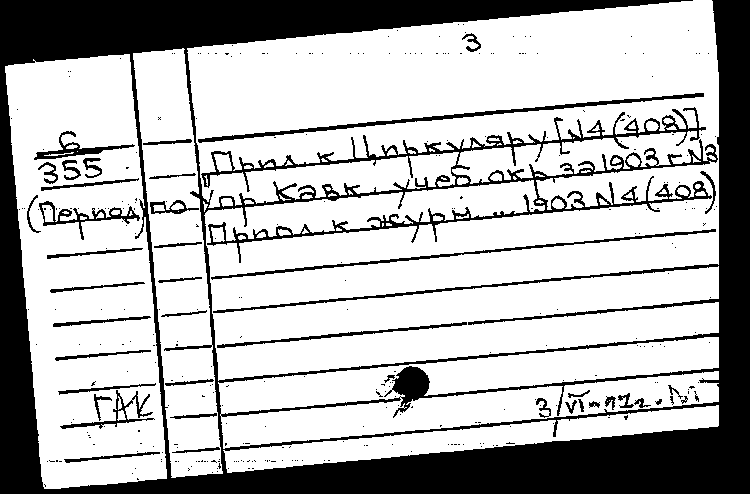 3
6
355
Прил. к Циркуляру [N4 (408)]
(Период) по Упр. Кавк. учеб. окр. за 1903 г. N3
Прил. к журн. ... 1903 N 4 (408)
ГАК
3/VI-71г. М